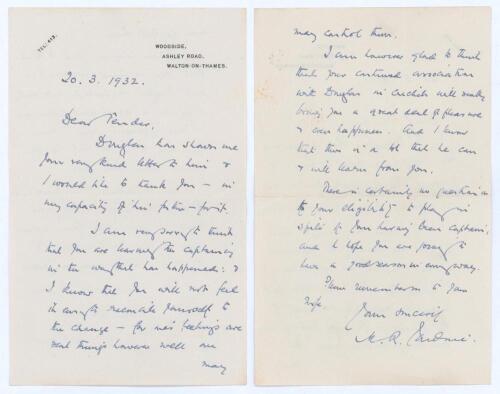 TEL: 413.
WOODSIDE,
ASHLEY ROAD,
WALTON-ON-THAMES.
20. 3. 1932.
Dear
Douglas has shown me
your very kind letter to him &
I would like to thank you – in
my capacity of his father – for it.
I am very sorry to think
that you are leaving the captaincy
in the way that has happened: &
I know that you will not feel
it easy to reconcile yourself to
the change – for one's feelings are
real things however well one
may
may control them.
I am however glad to think
that your continued association
with Douglas in cricket will really
bring you a great deal of pleasure
& even happiness. And I know
that there is a lot that he can
& will learn from you.
There is certainly no question as
to your eligibility to play in
spite of your having been captain:
and I hope you are going to
have a good season in every way.
Please remember me to your
wife.
Yours sincerely
M. R. Jardine.